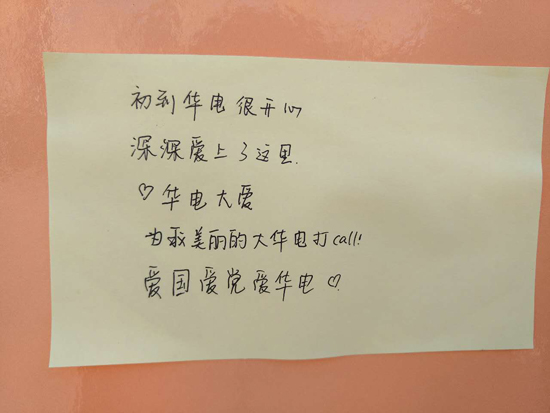 初到华电很开心
深深爱上了这里.
♡华电大爱
为我美丽的大华电打call!
爱国爱党爱华电♡.